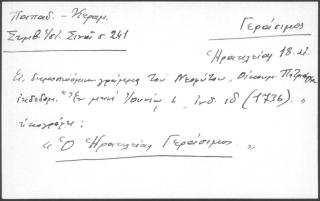 Παπαδ. - Κεραμ.
Συμβ. Ἱσ. Σινᾶ σ. 241
Γεράσιμος
Ἡρακλείας 18. αἰ.
Εἰς γράμμα τοῦ Νεοφύτου, Οἰκουμ. Πατριάρχου
ἐκδεδομ. "Ἐν μηνὶ Ἰουνίῳ ινδ. ιδ (1736). "
ὑπογράφει:
" Ὁ Ἡρακλείας Γεράσιμος. "